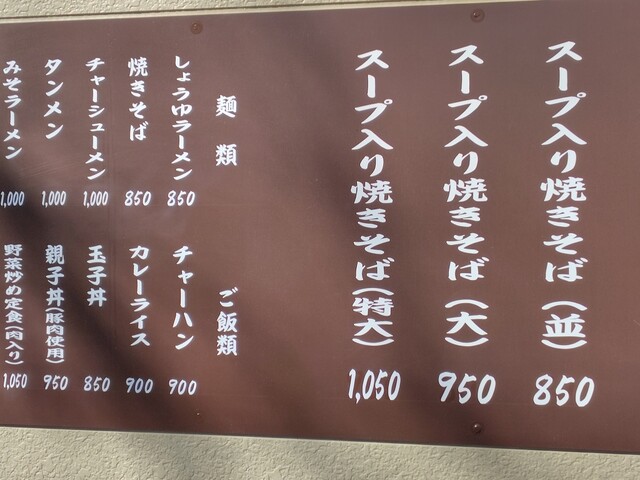 スープ入り焼きそば(並)
850
スープ入り焼きそば(大)
950
スープ入り焼きそば(特大)
1,050
麺類
しょうゆラーメン
850
焼きそば
850
チャーシューメン
1,000
タンメン
1,000
みそラーメン
1,000
ご飯類
チャーハン
900
カレーライス
900
玉子丼
850
親子丼(豚肉使用)
950
野菜炒め定食(肉入り)
1,050